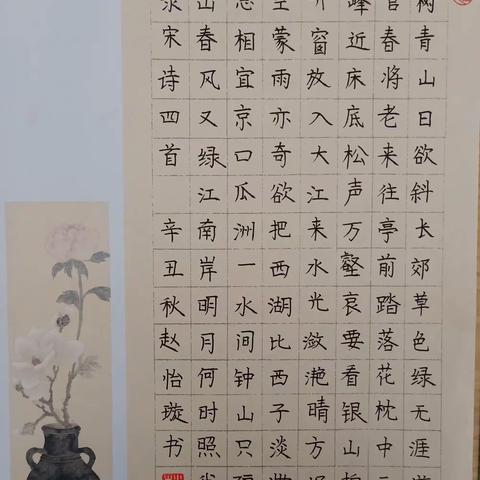 树青山日欲斜长郊草色绿无涯
管春将老来往亭前踏落花枕中
峰近床底松声万壑哀要看银山
开窗放入大江来水光潋滟晴方
空蒙雨亦奇欲把西湖比西子淡
总相宜京口瓜洲一水间钟山只隔
山春风又绿江南岸明月何时照我
录宋诗四首 辛丑秋赵怡璇书